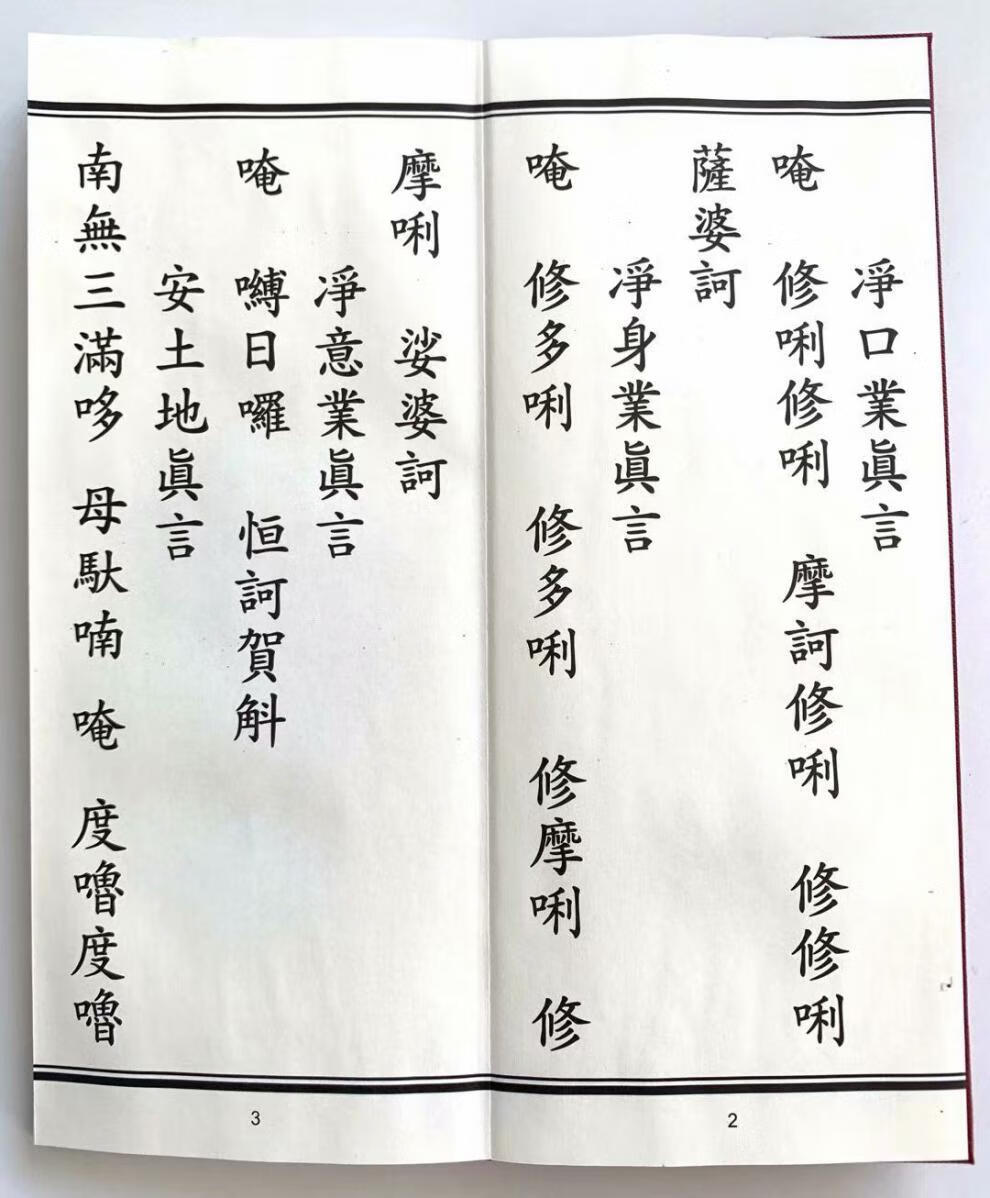 淨口業眞言
唵 修唎修唎 摩訶修唎 修修唎
薩婆訶
淨身業眞言
唵 修多唎 修多唎 修摩唎 修
2
摩唎 娑婆訶
淨意業眞言
唵 嚩日囉 怛訶賀斛
安土地眞言
南無三滿哆 母馱喃 唵 度嚕度嚕
3